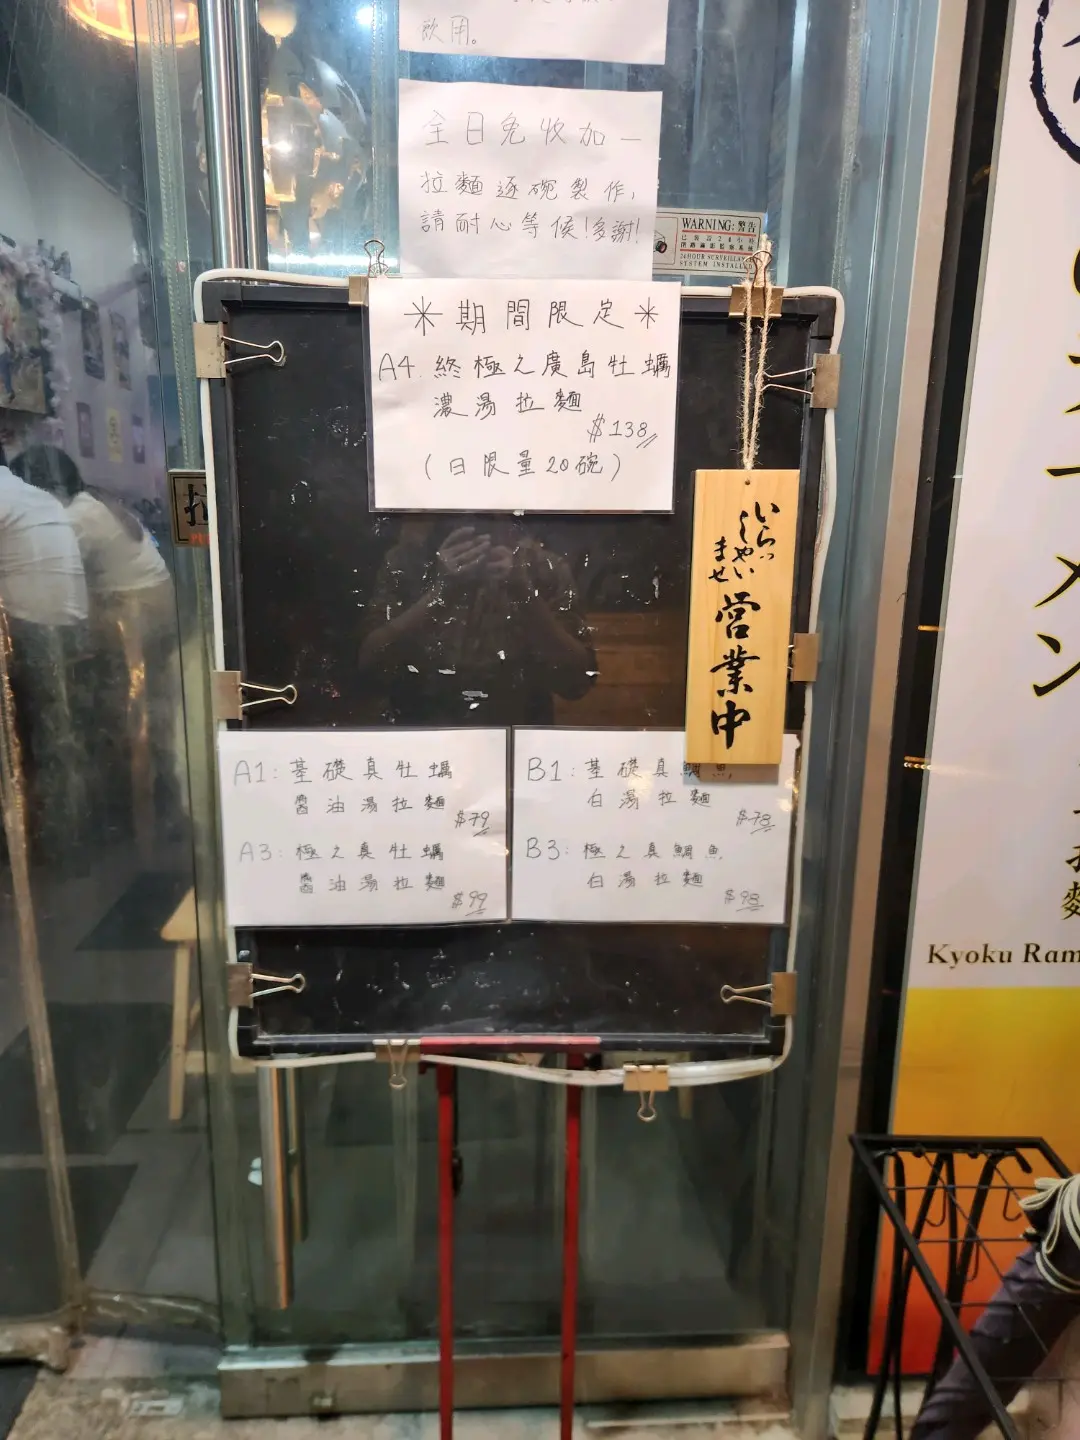 飲用。
全日免收加一
拉麵逐碗製作,
請耐心等候!多謝!
WARNING: 警告
24HOUR SURVEILLANCE
SYSTEM INSTALLED
＊期間限定＊
A4. 終極之廣島牡蠣
濃湯拉麵
$138
(日限量20碗)
いらっ
しゃい
ませ
営業中
A1: 基礎真牡蠣
醬油湯拉麵
$79
A3: 極之真牡蠣
醬油湯拉麵
$99
B1: 基礎真鯛魚
白湯拉麵
$78
B3: 極之真鯛魚
白湯拉麵
$98
メン
Kyoku Ram